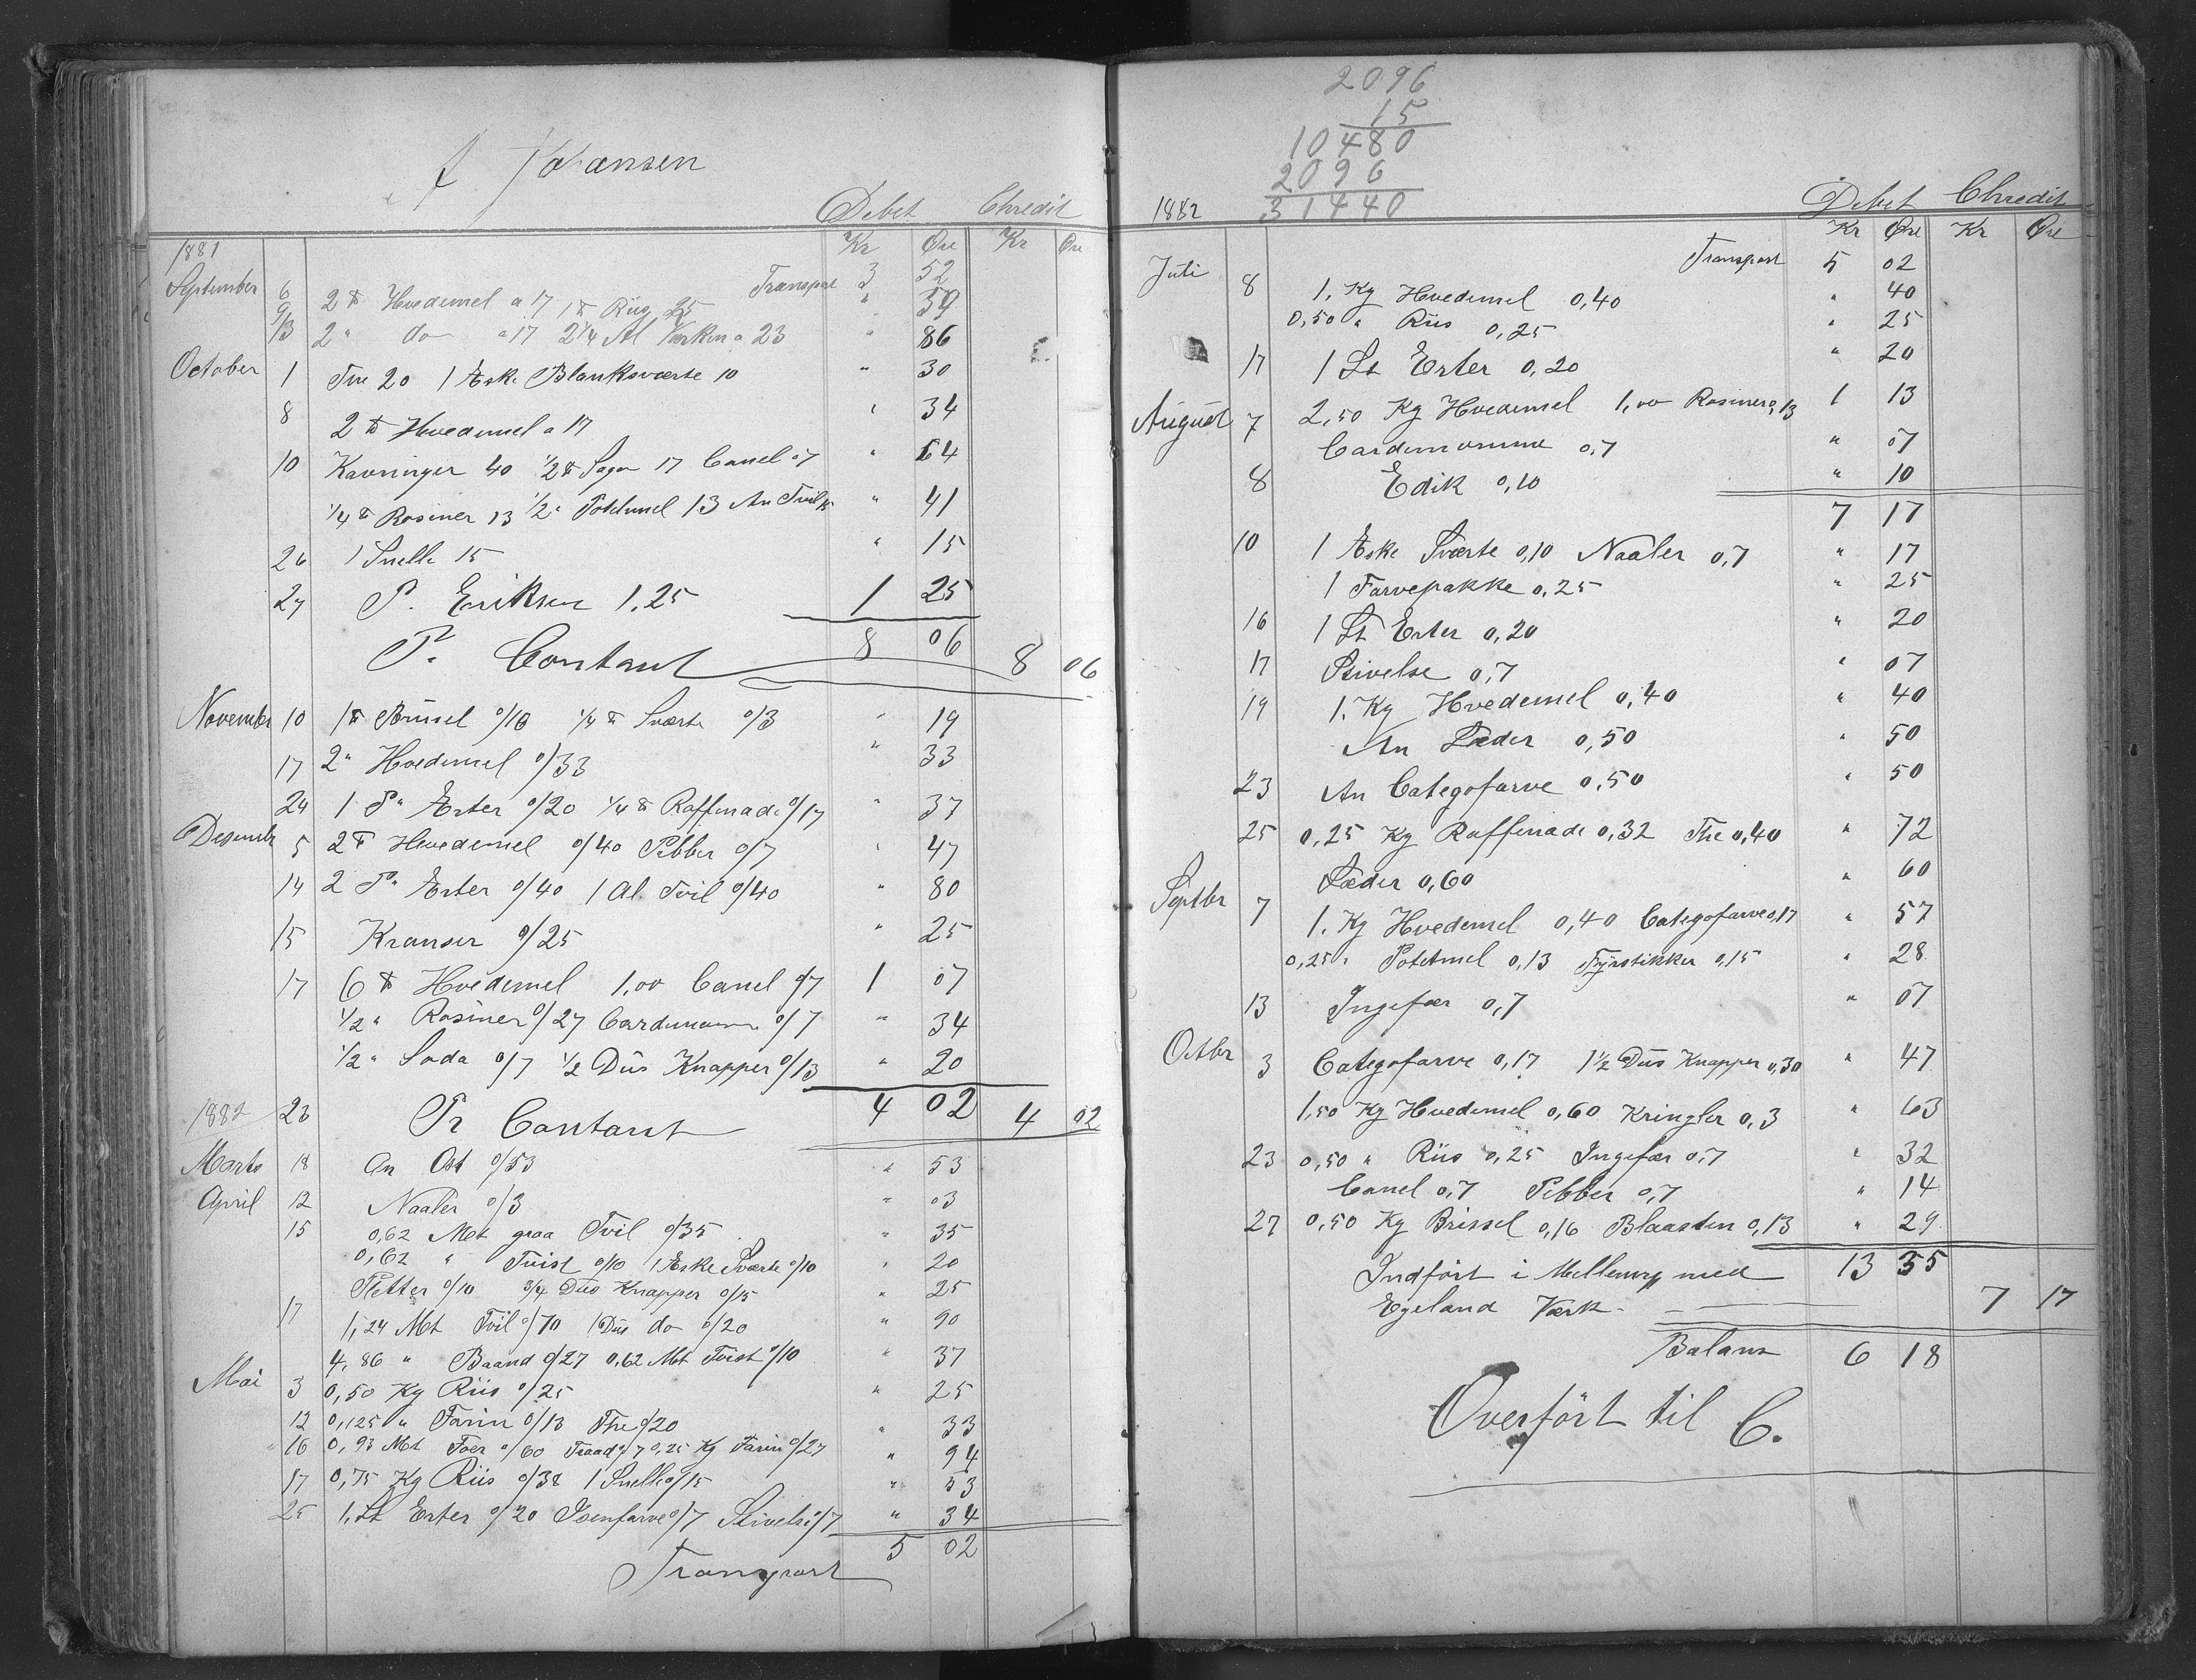 J. Johansen
Debet Chredit
1881 Kr Øre Kr Øre
Transport 3 52
September 6 2 ℔ Hvedemel a 17 1 ℔ Riis 25 " 59
9/13 2 " do a 17 2 1/4 Al Værken a 23 " 86
October 1 Tve 20 1 Æske Blanksværte 10 " 30
8 2 ℔ Hvedemel a 17 " 34
10 Kavringer 40 1/2 ℔ Sago 17 Canel 07 " 64
1/4 ℔ Rosiner 13 1/2 " Potetmel 13 An Tvil 15 " 41
26 1 Snelle 15 " 15
27 P. Eriksen 1,25 1 25
8 06
Pr. Contant 8 06
November 10 1 ℔ Brissel 0/16 1/4 ℔ Sværte 0/3 " 19
17 2 " Hvedemel 0/33 " 33
24 1 P. Erter 0/20 1/4 ℔ Raffenade 0/17 " 37
Desembr 5 2 ℔ Hvedemel 0/40 Pebber 0/7 " 47
14 2 P. Erter 0/40 1 Al Tvil 0/40 " 80
15 Kranser 0/25 " 25
17 6 ℔ Hvedemel 1,00 Canel 0/7 1 07
1/2 " Rosiner 0/27 Cardemomme 0/7 " 34
1/2 " Soda 0/7 1/2 Dus Knapper 0/13 " 20
1882 23 Pr Contant 4 02 4 02
Marts 18 An Ost 0/53 " 53
April 12 Naaler 0/3 " 03
15 0,62 Met graa Tvil 0/35 " 35
0,62 " Tvist 0/10 1 Æske Sværte 0/10 " 20
Pletter 0/10 3/4 Dus Knapper 0/15 " 25
17 1,24 Met Tvil 0/70 1 Dus do 0/20 " 90
4,86 " Baand 0/27 0,62 Met Tvist 0/10 " 37
Mai 3 0,50 Kg Riis 0/25 " 25
12 0,125 " Farin 0/13 The 0/20 " 33
16 0,93 Met Foer 0/60 Traad 0/7 0,25 Kg Farin 0/27 " 94
17 0,75 Kg Riis 0/38 1 Snelle 0/15 " 53
25 1. Lt Erter 0/20 Isenfarve 0/7 Stivelse 0/7 " 34
Transport 5 02
2096
15
10480
2096
31440
1882 Debet Chredit
Kr Øre Kr Øre
Transport 5 02
Juli 8 1. Kg Hvedemel 0,40 " 40
0,50 " Riis 0,25 " 25
17 1 Lt Erter 0,20 " 20
August 7 2,50 Kg Hvedemel 1,00 Rosiner 0,13 1 13
Cardemomme 0,7 " 07
8 Edik 0,10 " 10
7 17
10 1 Æske Sværte 0,10 Naaler 0,7 " 17
1 Farvepakke 0,25 " 25
16 1 Lt Erter 0,20 " 20
17 Stivelse 0,7 " 07
19 1. Kg Hvedemel 0,40 " 40
An Læder 0,50 " 50
23 An Categofarve 0,50 " 50
25 0,25 Kg Raffenade 0,32 The 0,40 " 72
Læder 0,60 " 60
Septbr 7 1. Kg Hvedemel 0,40 Categofarve 0,17 " 57
0,25 " Potetmel 0,13 Fyrstikker 0,15 " 28
13 Ingefær 0,7 " 07
Octbr 3 Categofarve 0,17 1 1/2 Dus Knapper 0,30 " 47
1,50 Kg Hvedemel 0,60 Kringler 0,3 " 63
23 0,50 " Riis 0,25 Ingefær 0,7 " 32
Canel 0,7 Pebber 0,7 " 14
27 0,50 Kg Brissel 0,16 Blaasten 0,13 " 29
Indført i Mellemrg med 13 35
Egeland Værk 7 17
Balans 6 18
Overført til C.